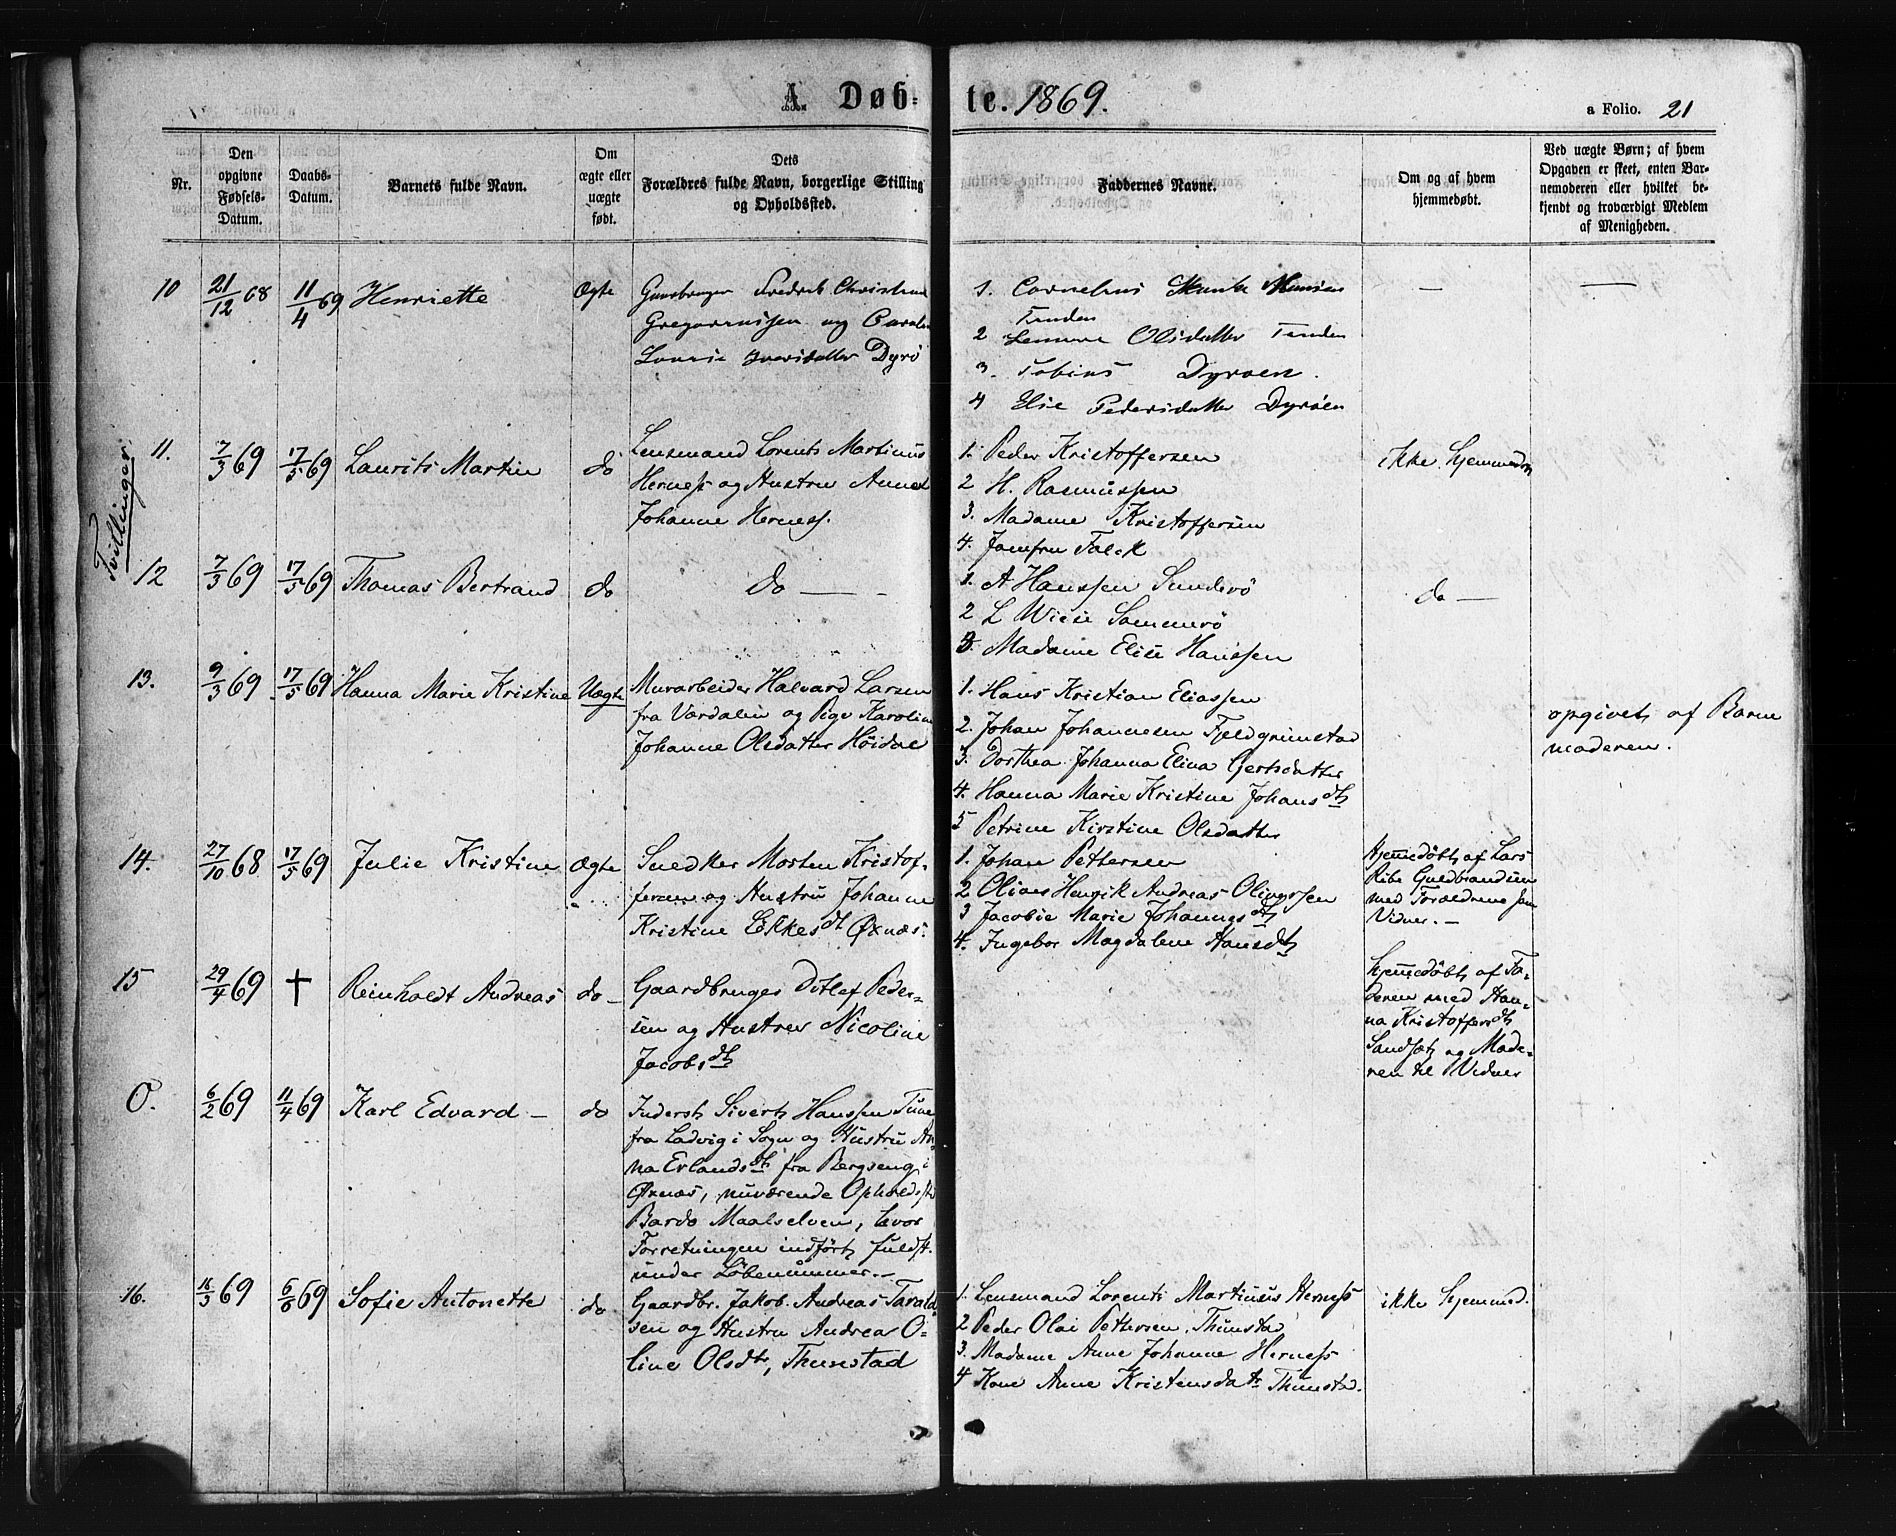 A. Døb- te. 1869.
a Folio. 21
Nr.
Den opgivne Fødsels-Datum.
Daabs-Datum.
Barnets fulde Navn.
Om ægte eller uægte født.
Dets Forældres fulde Navn, borgerlige Stilling og Opholdssted.
Faddernes Navne.
Om og af hvem hjemmedøbt.
Ved uægte Børn; af hvem Opgaven er skeet, enten Barnemoderen eller hvilket bekjendt og troværdigt Medlem af Menigheden.
10 21/12 68 11/4 69 Henriette Ægte
Fredrik Christian
og
Dyrö
1. Cornelius Munk
Tinden
2 Olsdatter Tinden
3. Tobias Dyröen.
4 Elie Pedersdatter Dyröen
Tvillinger
11. 7/3 69 17/5 69 Laurits Martin do
Lensmand Lorents Martinus
Herness og Hustru Anne
Johanne Herness.
1. Peder Kristoffersen
2 H. Rasmussen
3. Madame Kristoffersen
4. Jomfru Falck
ikke hjemmed.
12 7/3 69 17/5 69 Thomas Bertrand do do —
1. A Hanssen Sunderö
2 L Wiese Sommerö
3. Madame Elise Hanssen
do —
13. 9/3 69 17/5 69 Hanna Marie Kristine Uægte
Murarbeider Halvard Larsen
fra Værdalen og Pige Karoline
Johanne Olsdatter
1. Hans Kristian Eliassen
2. Johan Johannesen Fjeldgrunstad
3. Dorthea Johanna Elina Gertsdatter
4. Hanna Marie Kristine Johansdtr
5 Petrine Kirstine Olsdatter
opgivet af Barne
moderen.
14. 27/10 68 17/5 69 Julie Kristine Ægte
Snedker Morten Kristof-
fersen og Hustru Johanne
Kristine Ekkesdt Øxnæs.
1. Johan Pettersen
2. Oliver Henrik Andreas Oliversen
3 Jacobie Marie
4. Ingebor Magdalene Hansdtr
Hjemmedöbt af Lars
Ribe Guldbrandsen
med Forældrene som
Vidner. —
15 29/4 69 † Reinholdt Andreas do —
Gaardbruger Detlef Peder-
sen og Hustru Nicoline
Jacobsdtr
hjemmedöbt af Fa-
deren med Han-
na Kristoffersdtr
Sandsæt og Mode-
ren til Vidner
0. 6/2 69 11/4 69 Karl Edvard — do
Inderst Sivert Hanssen
fra Ladvig i Sogn og Hustru An-
na Erlandsdtr fra Bergseng i
Øxnæs, nuværende Opholdsst.
Bardo Maalselven, hvor
Forretningen indført fuldst.
under Löbenummer. —
16. 16/3 69 6/6 69 Sofie Antonette do
Gaardbr. Jakob Andreas Tarald-
sen og Hustru Andrea O-
line Olsdtr, Thunstad
1. Lensmand Lorents Martinus Herness
2 Peder Olai Pettersen, Thunstad
3. Madame Anne Johanne Herness
4 Kone Anne Kristensdatr Thunstad.
ikke hjemmed.